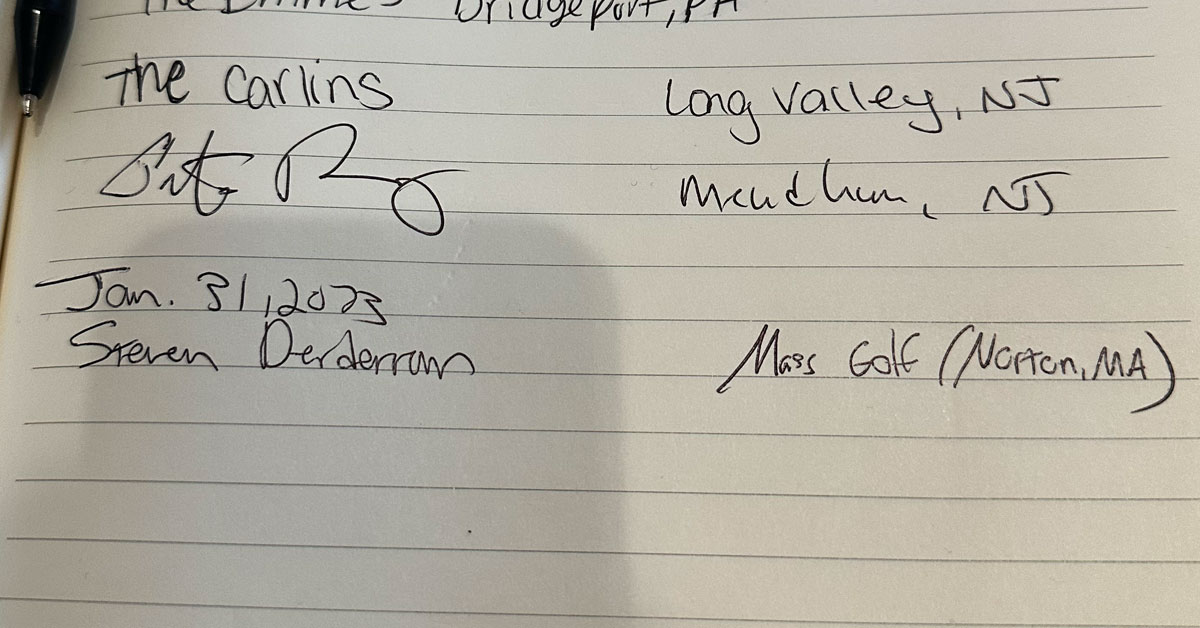 The Bridgeport, PA
The Carlins Long Valley, NJ
Mendham, NJ
Jan. 31, 2023
Steven Derderian Mass Golf (Norton, MA)